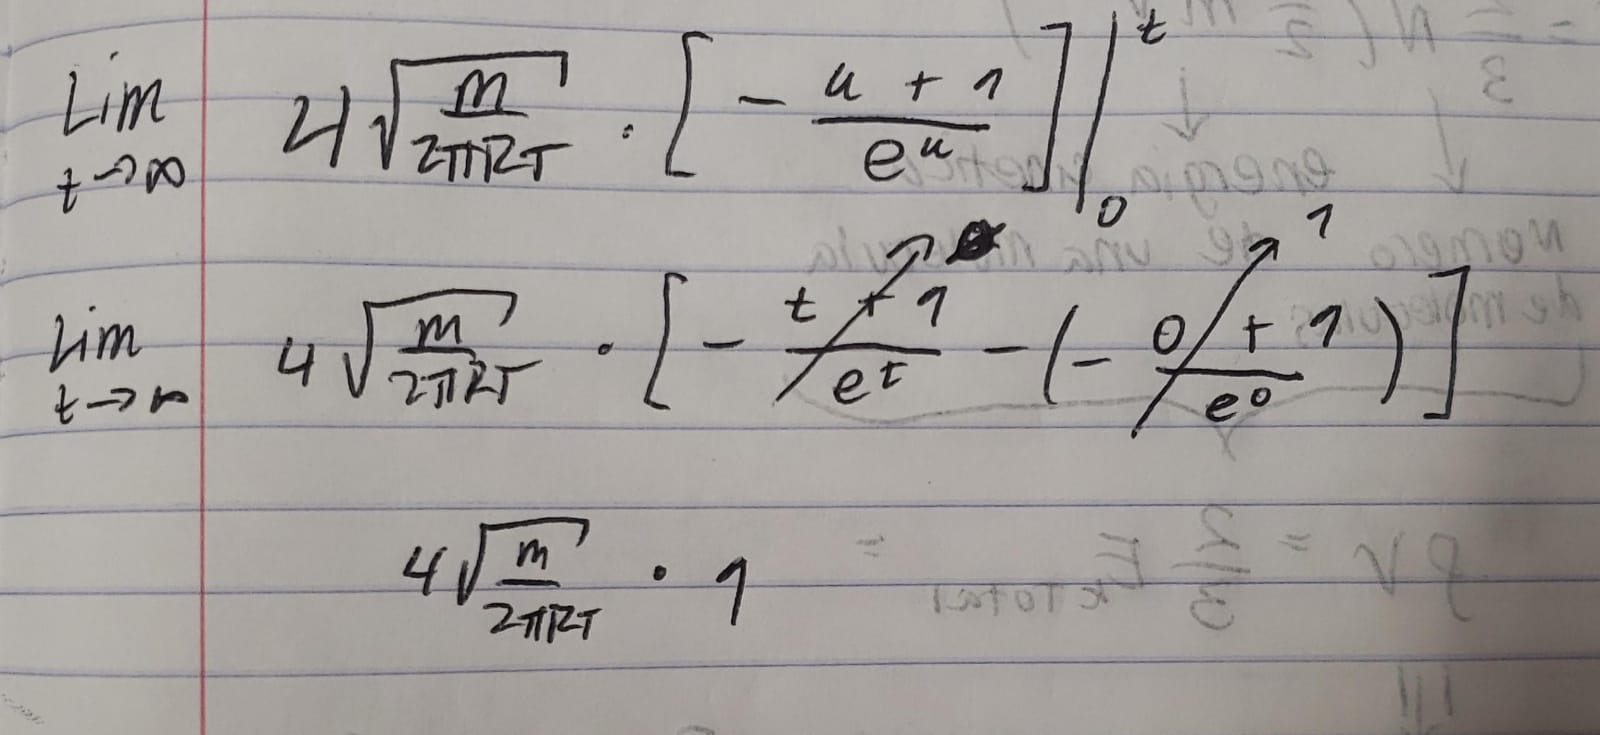 Lim t→∞ 4√(m/2πRT) · [ - (u + 1)/e^u ] |₀^t
Lim t→∞ 4√(m/2πRT) · [ - (t + 1)/e^t - (- (0 + 1)/e^0) ] 1
4√(m/2πRT) · 1